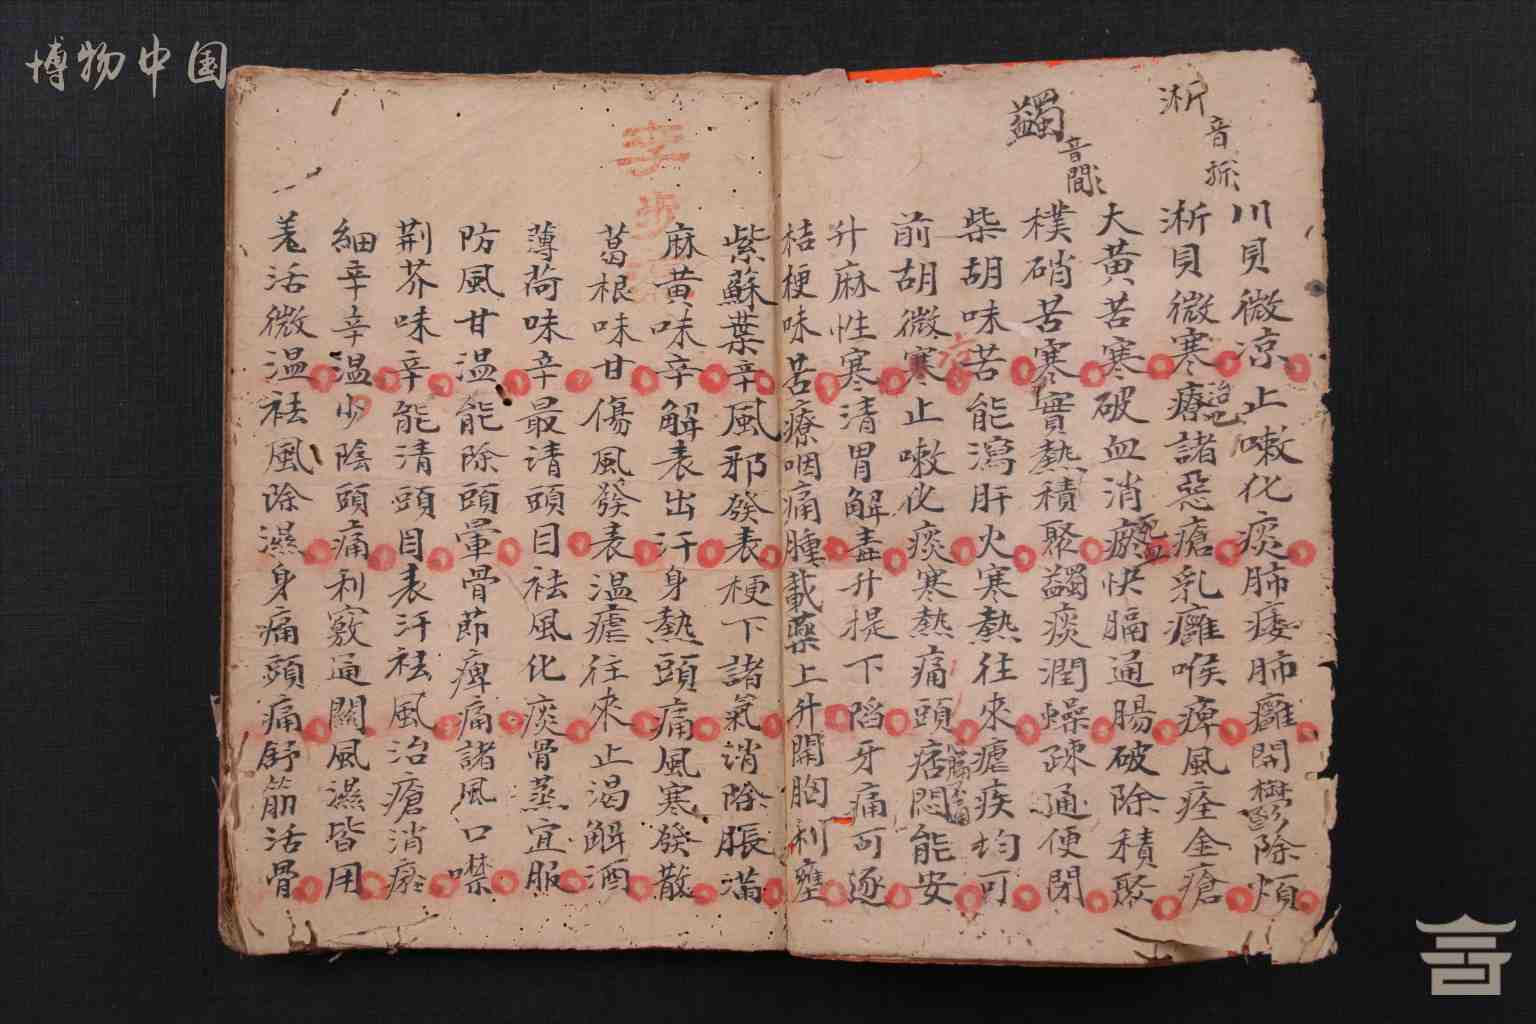 博物中国
淅
音
蠲
音
間
川貝微涼止嗽化痰肺痿肺癰開鬱除煩
淅貝微寒療諸惡瘡乳癰喉痺風痓金瘡
治
大黃苦寒破血消瘀快膈通腸破除積聚
死血
樸硝苦寒實熱積聚蠲痰潤燥疎通便閉
柴胡味苦能瀉肝火寒熱往來瘧疾均可
前胡微寒止嗽化痰寒熱痛頭痞悶能安
升麻性寒清胃解毒升提下陷牙痛可逐
桔梗味苦療咽痛腫載藥上升開胸利壅
紫蘇葉辛風邪發表梗下諸氣消除脹滿
麻黃味辛解表出汗身熱頭痛風寒發散
葛根味甘傷風發表溫瘧往來止渴解酒
薄荷味辛最清頭目袪風化痰骨蒸宜服
防風甘溫能除頭暈骨節痺痛諸風口噤
荆芥味辛能清頭目表汗袪風治瘡消瘀
細辛辛溫少陰頭痛利竅通關風濕皆用
羌活微溫袪風除濕身痛頭痛舒筋活骨
字